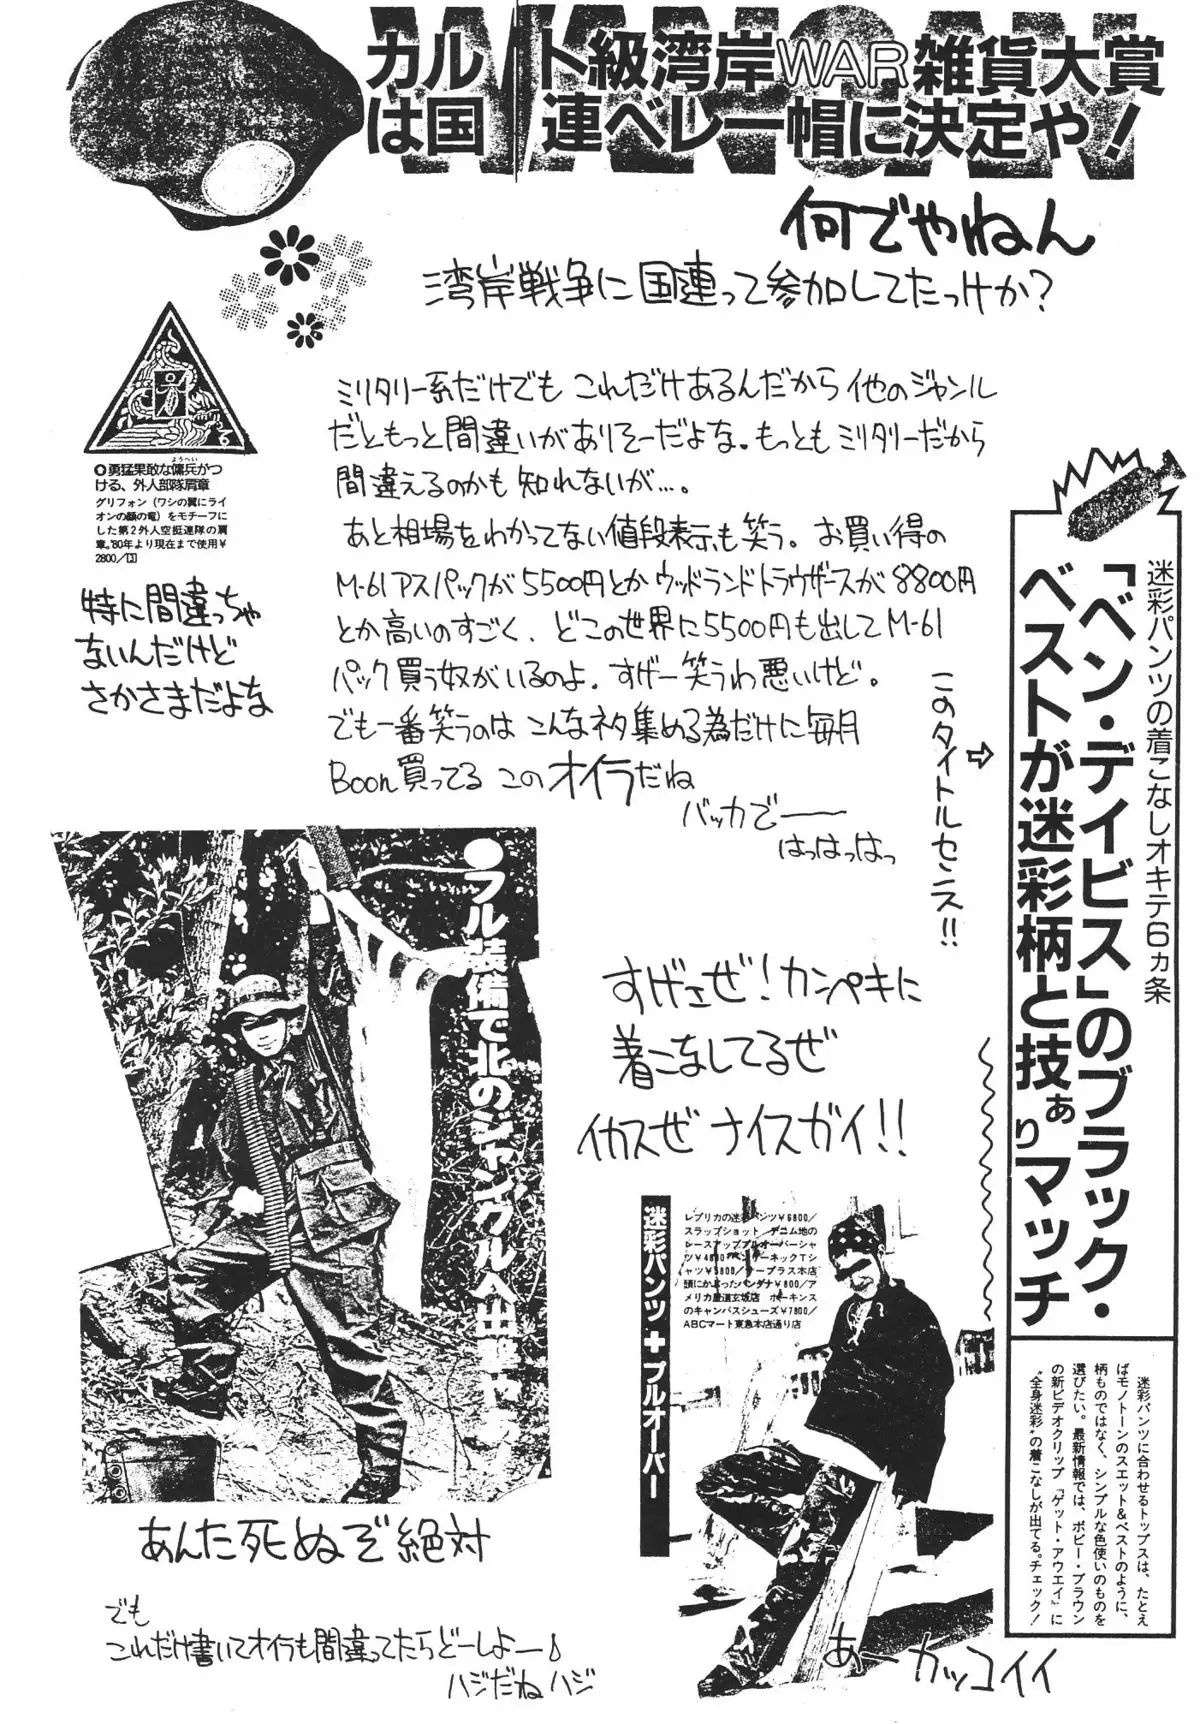 WANGAN
カルト級湾岸WAR雑貨大賞
は国連ベレー帽に決定や！
何でやねん
湾岸戦争に国連って参加してたっけか?
ミリタリー系だけでも これだけあるんだから他のジャンル
だともっと間違いがありそーだよな。もっともミリタリーだから
間違えるのかも知れないが…。
あと相場をわかってない値段表示も笑う。お買い得の
M-61アスパックが5500円とかウッドランドトラウザースが8800円
とか高いのすごく、どこの世界に5500円も出してM-61
パック買う奴がいるのよ、すげー笑うわ悪いけど。
でも一番笑うのは こんなネタ集める為だけに毎月
Boon買ってる このオイラだね
バッカでーー
はっはっはっ
ようへい
○勇猛果敢な傭兵がつ
ける、外人部隊肩章
グリフォン（ワシの翼にライ
オンの顔の竜）をモチーフに
した第2外人空挺連隊の肩
章。'80年より現在まで使用¥
2800/13
特に間違っちゃ
ないんだけど
さかさまだよな
このタイトルセンス!!
⇨
迷彩パンツの着こなしオキテ6ヵ条
「ベン・デイビス」のブラック・
ベストが迷彩柄と技ぁりマッチ
迷彩パンツに合わせるトップスは、たとえ
ばモノトーンのスエット&ベストのように、
柄ものではなく、シンプルな色使いのものを
選びたい。最新情報では、ボビー・ブラウン
の新ビデオクリップ「ゲット・アウエイ」に
“全身迷彩”の着こなしが出てる。チェック！
●フル装備で北のジャングルへ出撃や
あんた死ぬぞ絶対
すげェぜ!カンペキに
着こなしてるぜ
イカスぜ ナイスガイ!!
迷彩パンツ+プルオーバー
レプリカの迷彩パンツ¥6800/
スラップショット デニム地の
レースアッププルオーバーシャ
ツ¥4800 ヘンリーネックTシ
ャツ¥3800/ナープラス本店
頭にかぶったバンダナ¥800/ア
メリカ屋道玄坂店 ホーキンス
のキャンバスシューズ¥7800/
ABCマート東急本店通り店
あーカッコイイ
でも
これだけ書いてオイラも間違ってたらどーしよー♪
ハジだねハジ